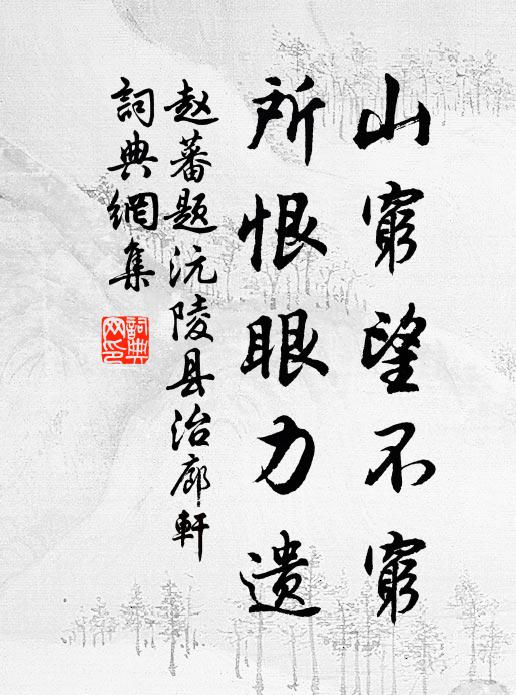 山窮望不窮
所恨眼力遗
赵蕃题沅陵县治廊軒
詞典網集
詞典
网印